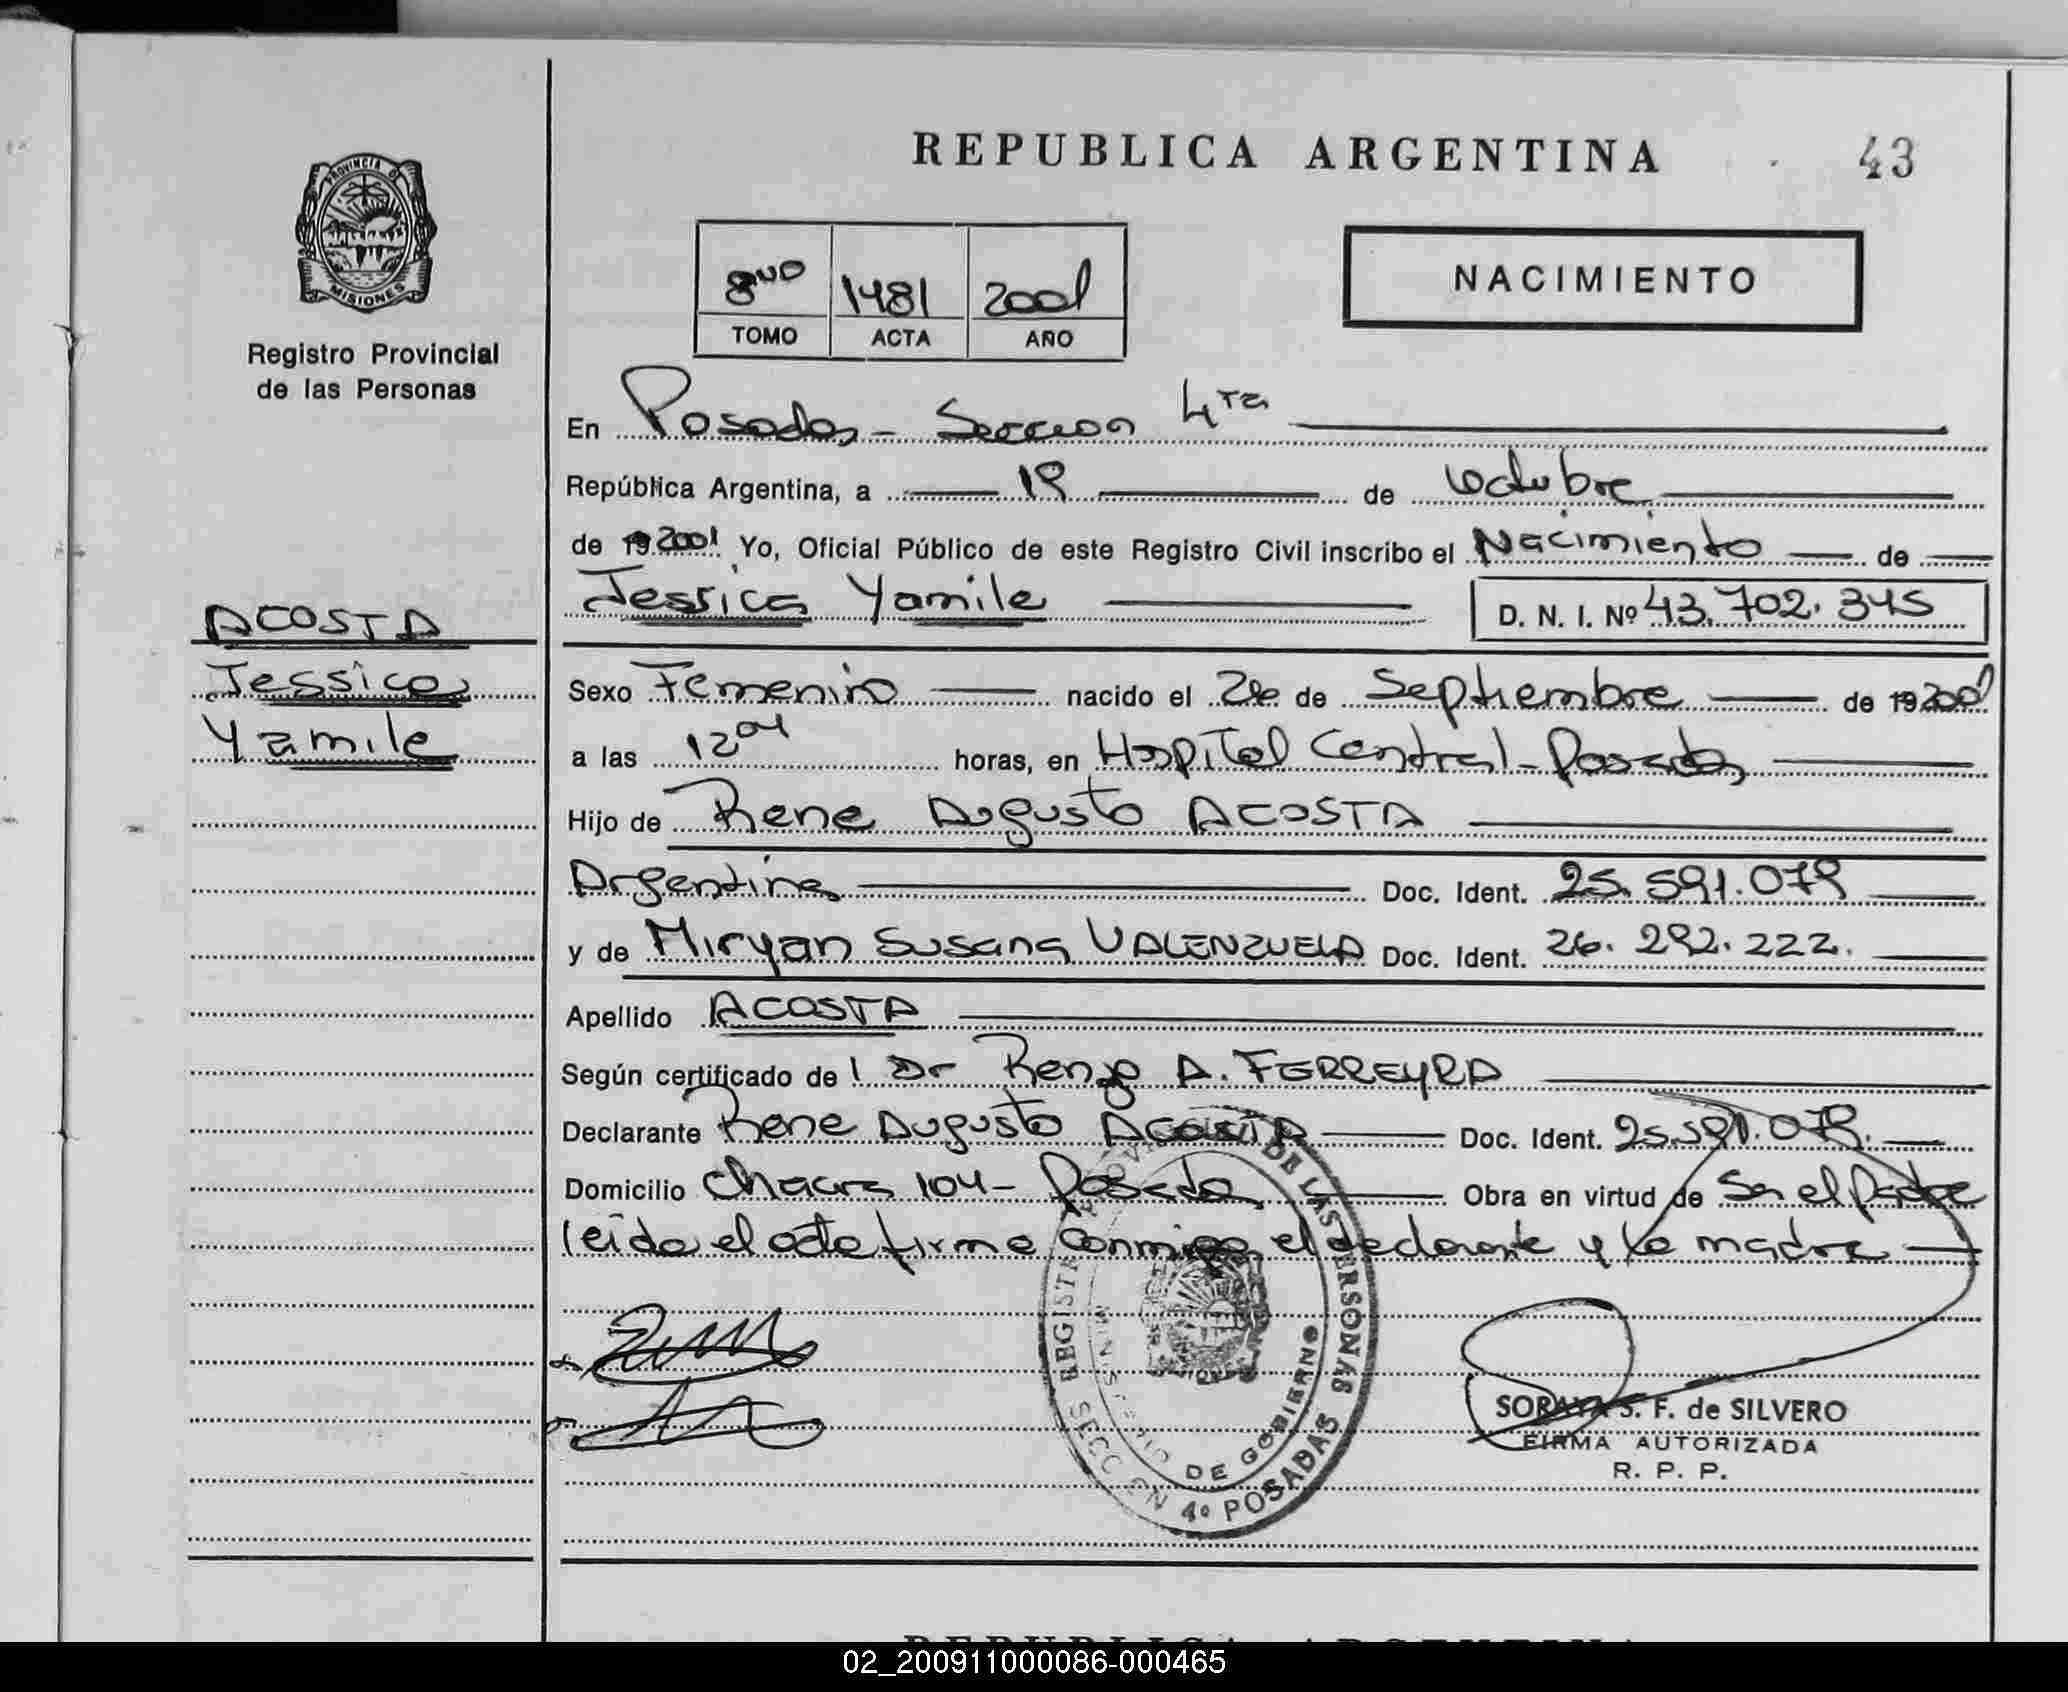 REPUBLICA ARGENTINA
43
PROVINCIA DE
MISIONES
Registro Provincial
de las Personas
8vo 1481 2001
TOMO ACTA AÑO
NACIMIENTO
En Posadas - Seccion 4ta
República Argentina, a 19 de Octubre
de 19 2001 Yo, Oficial Público de este Registro Civil inscribo el Nacimiento de
Jessica Yamile D. N. I. Nº 43.702.345
ACOSTA
Jessica
Yamile
Sexo Femenino nacido el de Septiembre de 19 2001
a las 12 04 horas, en Hospital Central - Posadas
Hijo de Rene Augusto ACOSTA
Argentina Doc. Ident. 25.591.079
y de Miryan Susana VALENZUELA Doc. Ident. 26.292.222.
Apellido ACOSTA
Según certificado de l Dr Renzo A. FERREYRA
Declarante Rene Augusto ACOSTA Doc. Ident. 25.591.079.
Domicilio Chacra 104 - Posadas Obra en virtud de Ser el Padre
leida el acta firma conmigo el declarante y la madre
REGISTRO PROVINCIAL DE LAS PERSONAS
MINISTERIO DE GOBIERNO
SECCION 4º POSADAS
SORAYA S. F. de SILVERO
FIRMA AUTORIZADA
R. P. P.
REPUBLICA ARGENTINA
02_200911000086-000465